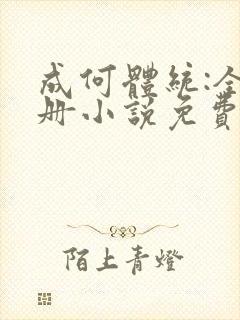 成何體統:全
册小説免費
陌上青燈